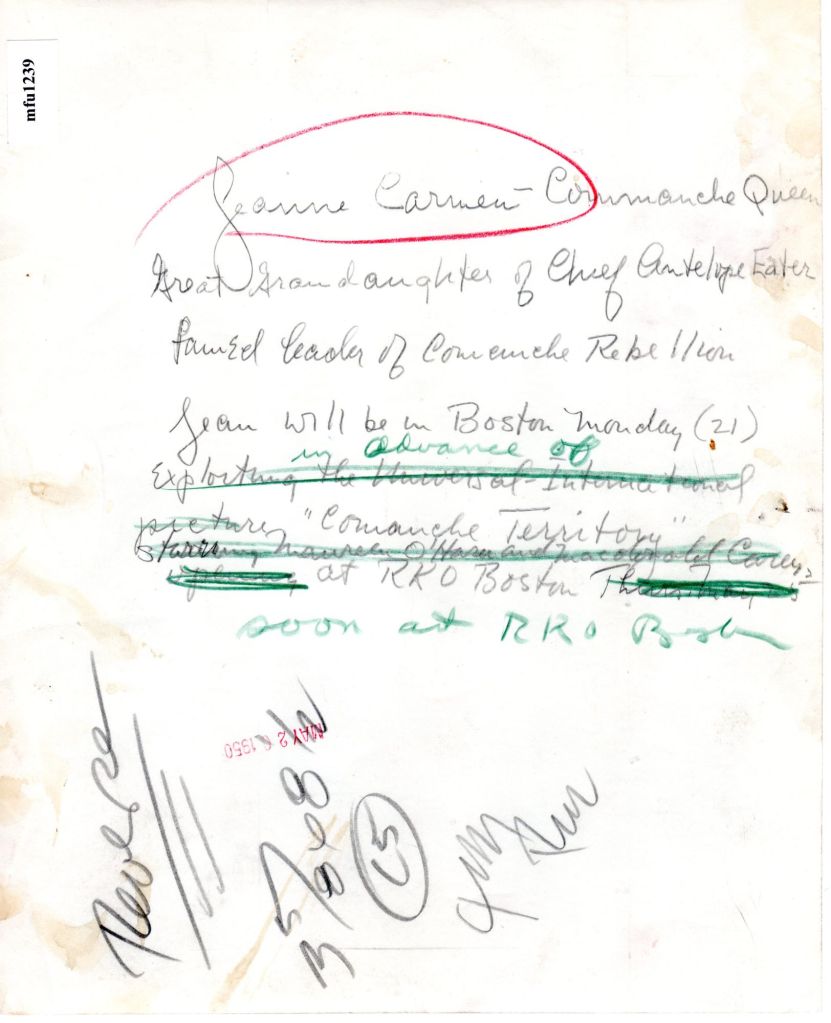 mfu1239
Jeanne Carmen - Commanche Queen
Great Grandaughter of Chief Antelope Eater
famed leader of Comanche Rebellion
Jean will be in Boston Monday (21)
in advance of
Exploiting the Universal-International
picture, "Comanche Territory"
Starring Maureen O'Hara and Macdonald Carey
at RKO Boston
soon at RKO Boston
MAY 26 1950
Reverse
15